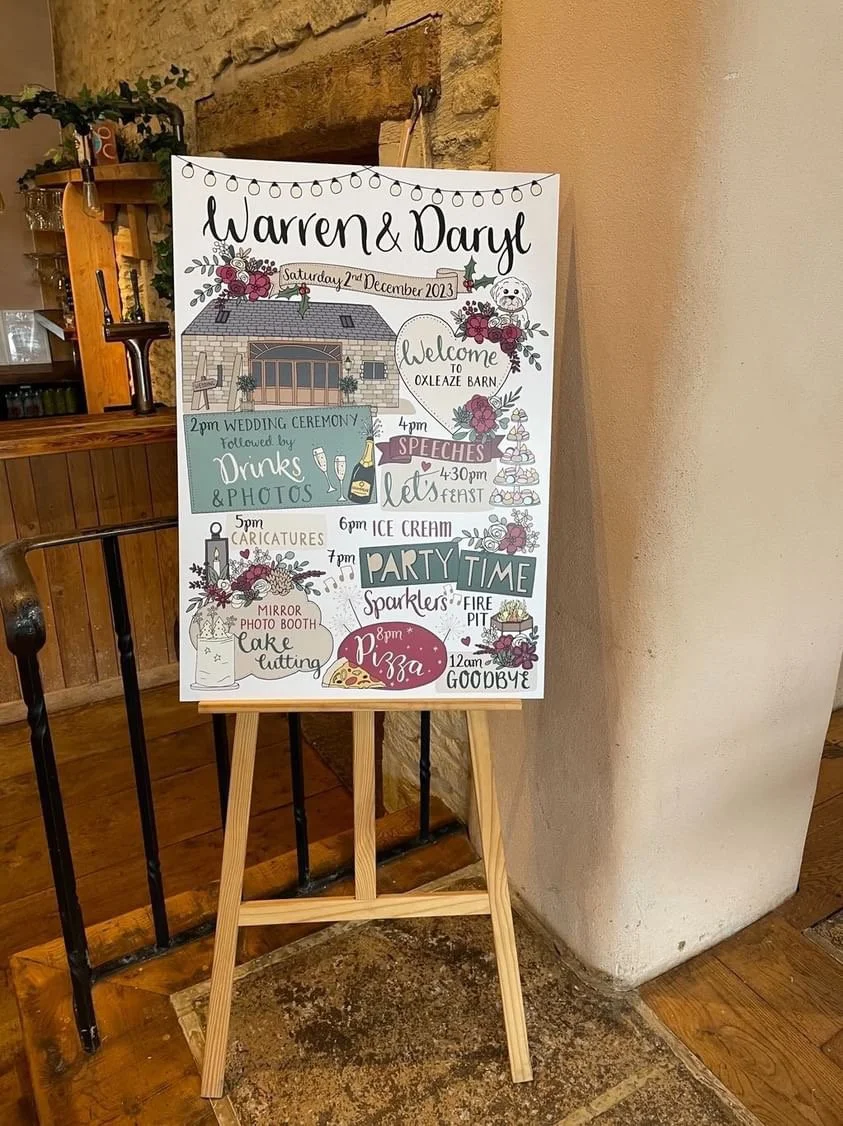 Warren & Daryl
Saturday 2nd December 2023
Welcome
TO
OXLEAZE BARN
WEDDING
2pm WEDDING CEREMONY
Followed by
Drinks
& PHOTOS
4pm
SPEECHES
4:30pm
Let's FEAST
5pm
CARICATURES
6pm ICE CREAM
7pm PARTY TIME
Sparklers
FIRE
PIT
MIRROR
PHOTO BOOTH
Cake
Cutting
8pm
Pizza
12am
GOODBYE